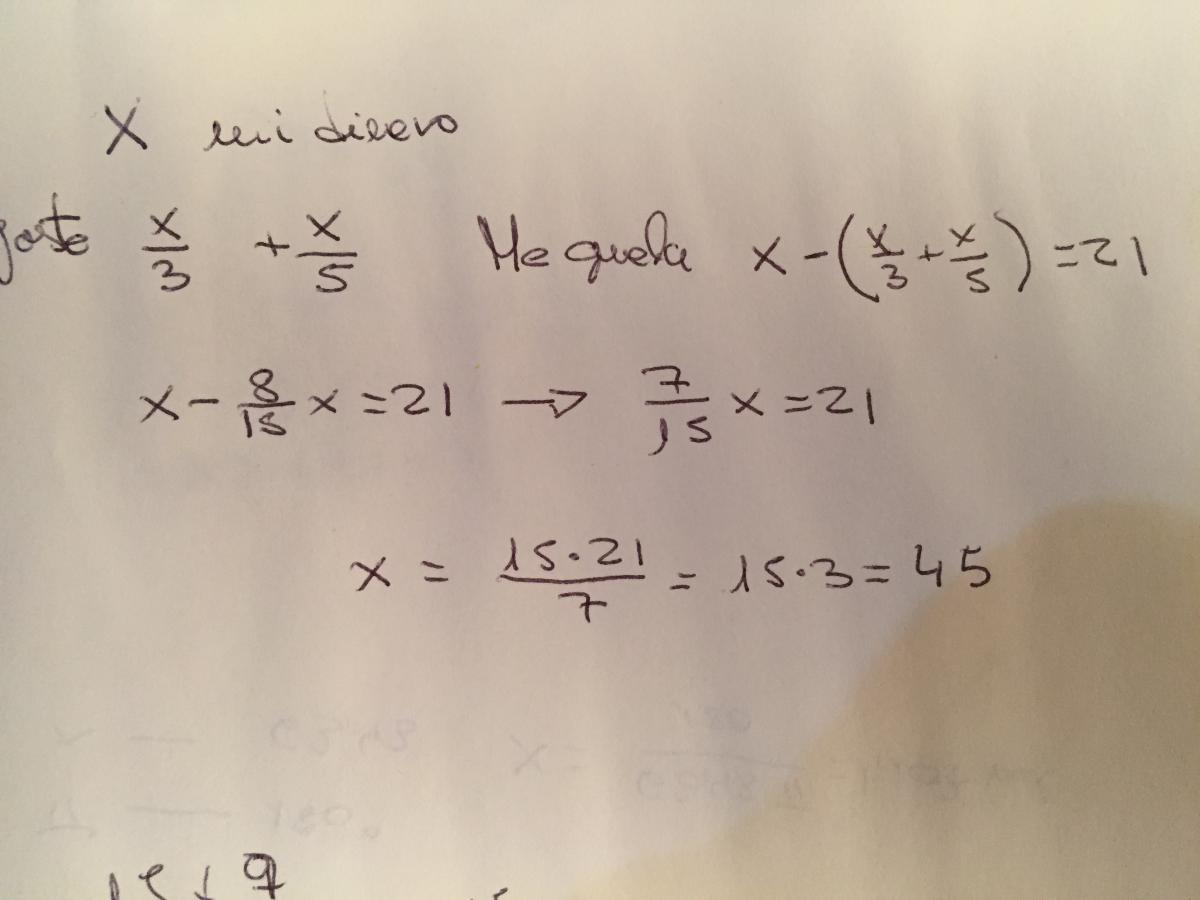 X mi dinero
gasto x/3 + x/5 Me queda x - (x/3 + x/5) = 21
x - 8/15 x = 21 → 7/15 x = 21
x = 15·21/7 = 15·3 = 45